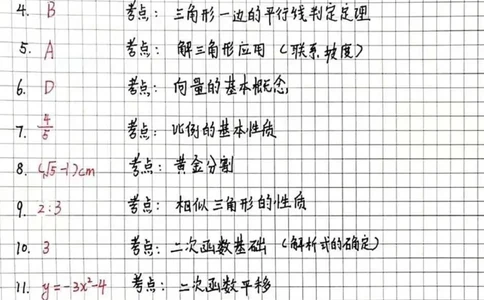 4. B 考点: 三角形一边的平行线判定定理
5. A 考点: 解三角形应用 (联系坡度)
6. D 考点: 向量的基本概念
7. 4/5 考点: 比例的基本性质
8. (√5-1)cm 考点: 黄金分割
9. 2:3 考点: 相似三角形的性质
10. 3 考点: 二次函数基础 (解析式的确定)
11. y=-3x²-4 考点: 二次函数平移